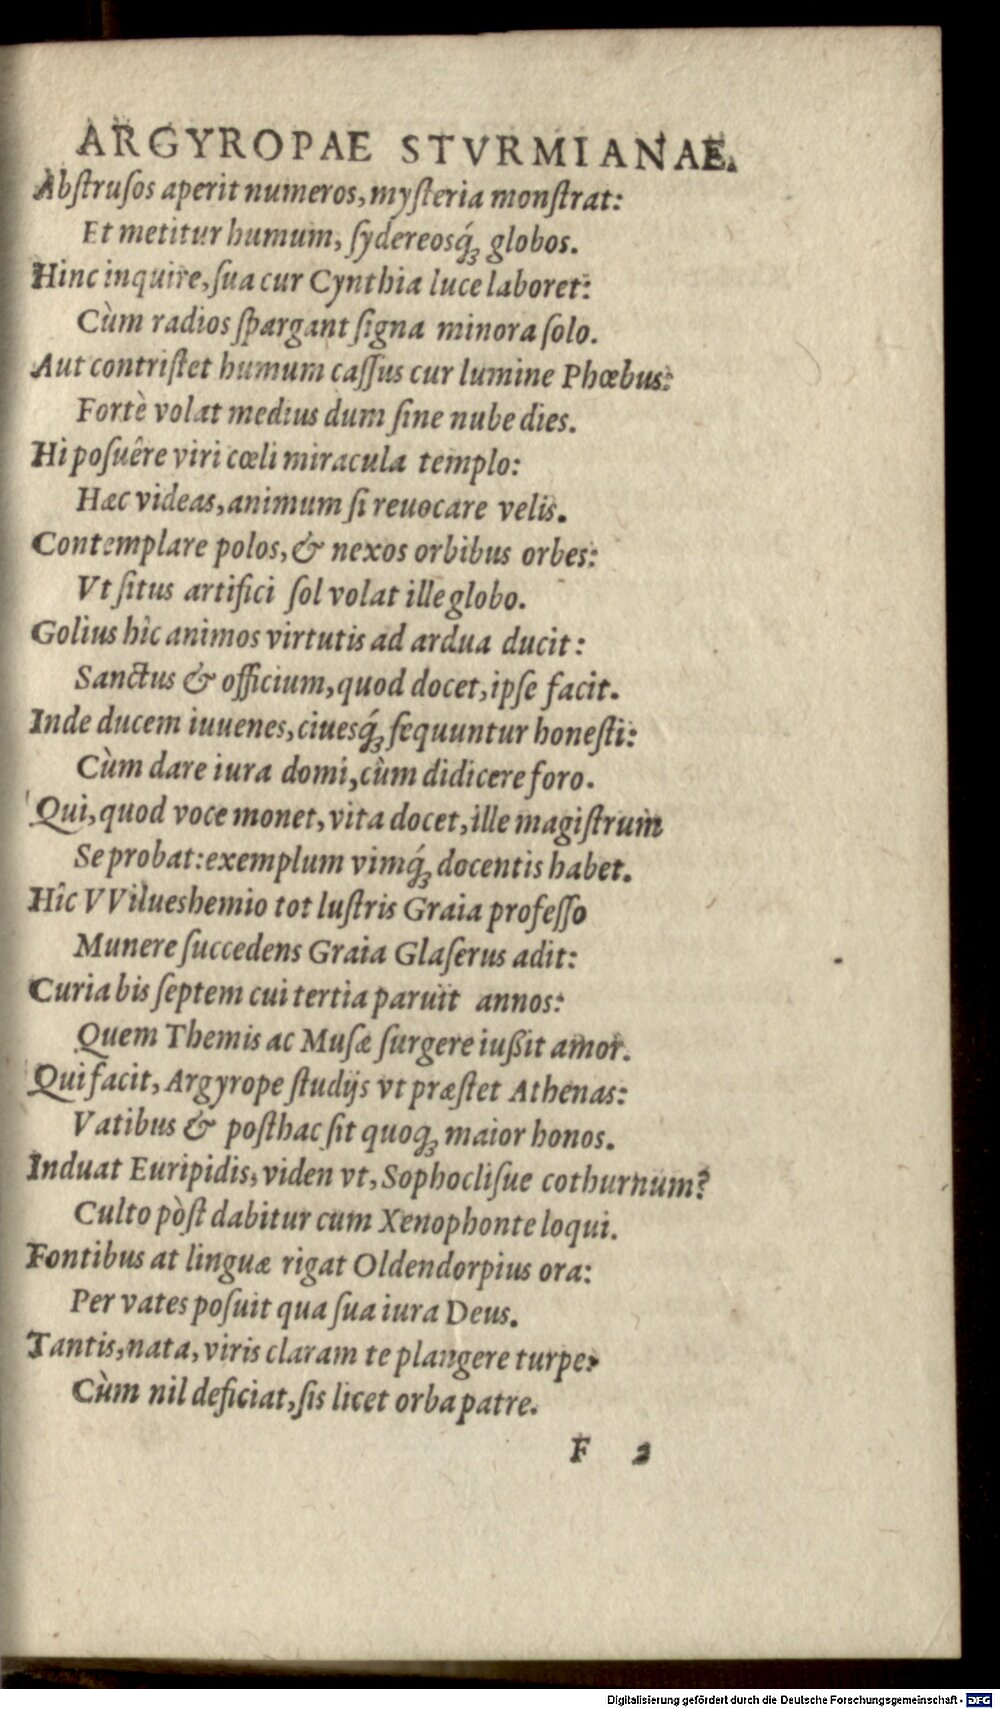 ARGYROPAE STVRMIANAE.
Abſtruſos aperit numeros, myſteria monſtrat:
Et metitur humum, ſydereosq́ꝫ globos.
Hinc inquire, ſua cur Cynthia luce laboret:
Cùm radios ſpargant ſigna minora ſolo.
Aut contriſtet humum caſſus cur lumine Phœbus:
Fortè volat medius dum ſine nube dies.
Hi poſuêre viri cœli miracula templo:
Hæc videas, animum ſi reuocare velis.
Contemplare polos, & nexos orbibus orbes:
Vt ſitus artifici ſol volat ille globo.
Golius hîc animos virtutis ad ardua ducit:
Sanctus & officium, quod docet, ipſe facit.
Inde ducem iuuenes, ciuesq́ꝫ ſequuntur honeſti:
Cùm dare iura domi, cùm didicere foro.
Qui, quod voce monet, vita docet, ille magiſtrum
Se probat: exemplum vimq́ꝫ docentis habet.
Hîc VVilueshemio tot luſtris Graia profeſſo
Munere ſuccedens Graia Glaſerus adit:
Curia bis ſeptem cui tertia paruit annos:
Quem Themis ac Muſæ ſurgere iußit amor.
Qui facit, Argyrope ſtudijs vt præſtet Athenas:
Vatibus & poſthac ſit quoqꝫ maior honos.
Induat Euripidis, viden vt, Sophocliſue cothurnum?
Culto pòſt dabitur cum Xenophonte loqui.
Fontibus at linguæ rigat Oldendorpius ora:
Per vates poſuit qua ſua iura Deus.
Tantis, nata, viris claram te plangere turpe:
Cùm nil deficiat, ſis licet orba patre.
F 2
Digitalisierung gefördert durch die Deutsche Forschungsgemeinschaft - DFG